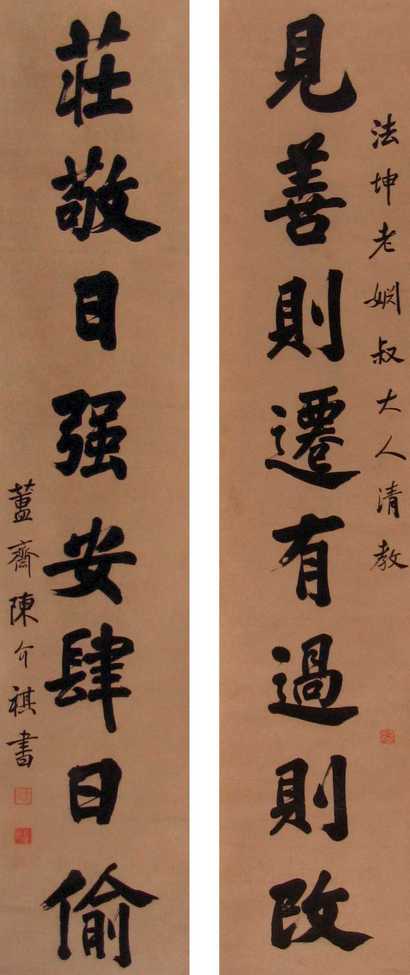 法坤老姻叔大人清教
見善則遷有過則改
莊敬日强安肆日偷
簠齋陳介祺書